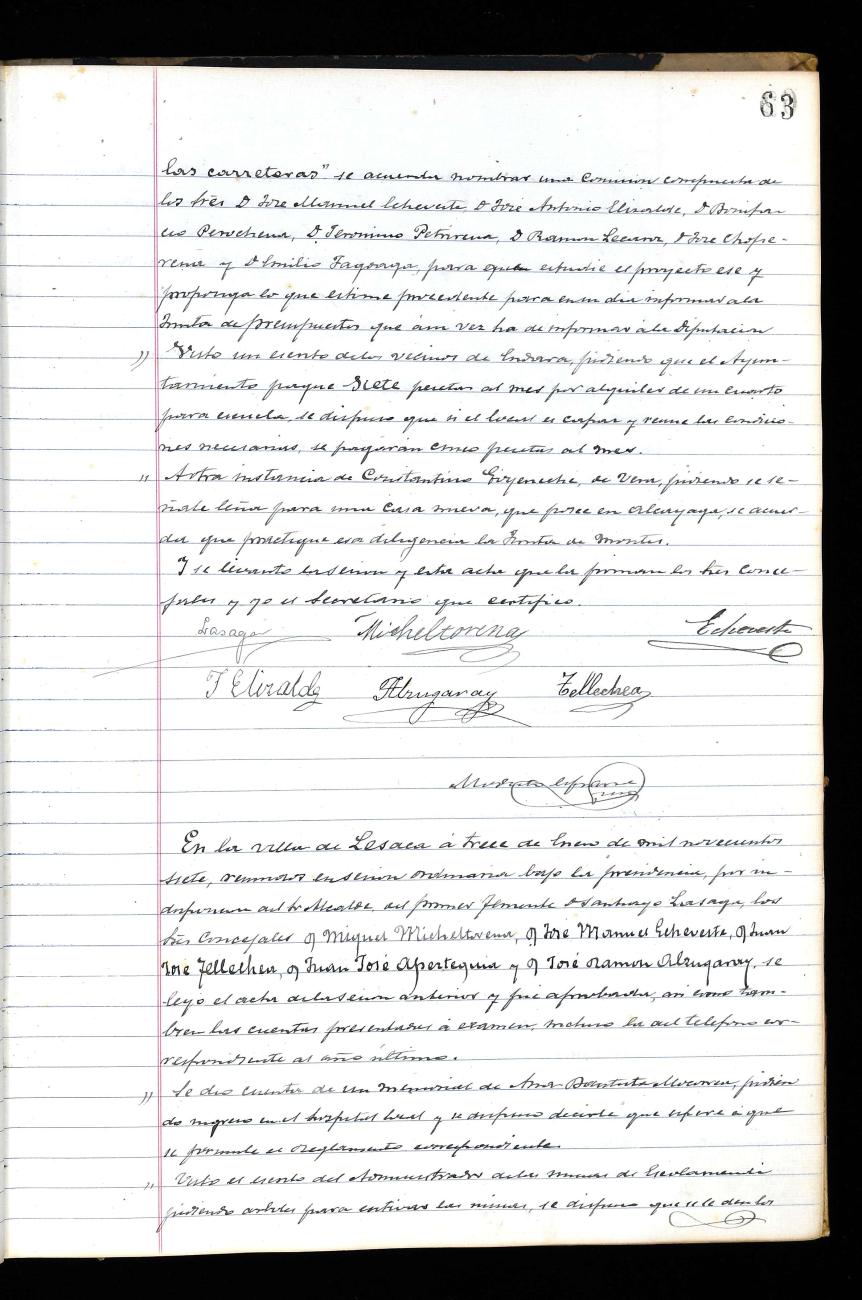 63
las carreteras" se acuerda nombrar una Comision compuesta de
los Sres D. Jose Manuel Echeveste, D. José Antonio Elizalde, D. Bonifa-
cio Perochena, D. Jeronimo Petrirena, D. Ramon Lecaroz, D. Jose Chope-
rena y D. Emilio Fagoaga, para que estudie el proyecto ese y
proponga lo que estime procedente para en su dia informar a la
Junta de presupuestos que á su vez ha de informar á la Diputacion
" Visto un escrito de los vecinos de Endara, pidiendo que el Ayun-
tamiento pague siete pesetas al mes por alquiler de un cuarto
para escuela, se dispuso que si el local es capaz y reune las condicio-
nes necesarias, se pagarán cinco pesetas al mes.
" A otra instancia de Constantino Goyeneche, de Vera, pidiendo se se-
ñale leña para una casa nueva, que posee en Alcayaga, se acuer-
da que practique esa diligencia la Junta de Montes.
Y se levantó la sesion y esta acta que la firman los Sres Conce-
jales y yo el Secretario que certifico.
Lasaga Micheltorena Echeveste
J Elizalde Alzugaray Tellechea
Modesto
En la villa de Lesaca á trece de Enero de mil novecientos
siete, reunidos en sesion ordinaria bajo la presidencia, por in-
disposicion del Sr Alcalde, del primer Teniente D Santiago Lasaga, los
Sres Concejales D Miguel Micheltorena, D José Manuel Echeveste, D Juan
José Tellechea, D Juan José Apertegui y D José Ramon Alzugaray, se
leyo el acta de la sesion anterior y fue aprobada, asi como tam-
bien las cuentas presentadas á examen, incluso la del telefono cor-
respondiente al año último.
" Se dio cuenta de un memorial de Ana Bautista, pidien
do ingreso en el hospital local y se dispuso decirle que espere á que
se formule el Reglamento correspondiente
" Visto el escrito del Administrador de las minas de
pidiendo arboles para entivar las minas, se dispuso que se le den los